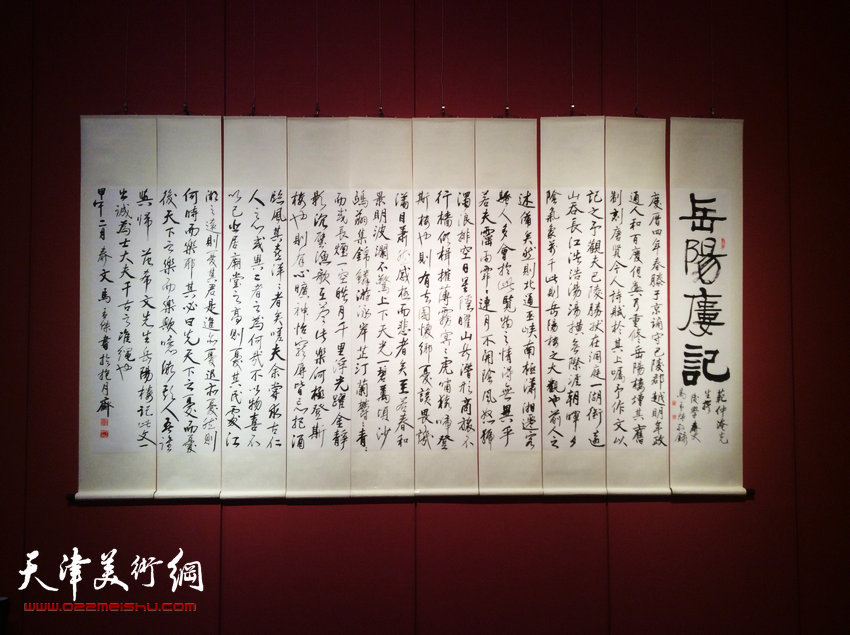 岳陽廔記
范仲淹先
生撰
慶曆四年春滕子京謫守巴陵郡越明年政
通人和百廢俱興乃重修岳陽樓增其舊
制刻唐賢今人詩賦於其上囑予作文以
記之予觀夫巴陵勝狀在洞庭一湖銜遠
山吞長江浩浩湯湯橫無際涯朝暉夕
陰氣象萬千此則岳陽樓之大觀也前人之
述備矣然則北通巫峽南極瀟湘遷客
騷人多會於此覽物之情得無異乎
若夫霪雨霏霏連月不開陰風怒號
濁浪排空日星隱曜山岳潛形商旅不
行檣傾楫摧薄暮冥冥虎嘯猿啼登
斯樓也則有去國懷鄉憂讒畏譏
滿目蕭然感極而悲者矣至若春和
景明波瀾不驚上下天光一碧萬頃沙
鷗翔集錦鱗游泳岸芷汀蘭鬱鬱青青
而或長煙一空皓月千里浮光躍金靜
影沉璧漁歌互答此樂何極登斯
樓也則有心曠神怡寵辱皆忘把酒
臨風其喜洋洋者矣嗟夫余嘗求古仁
人之心或異二者之為何哉不以物喜不
以己悲居廟堂之高則憂其民處江
湖之遠則憂其君是進亦憂退亦憂然則
何時而樂耶其必曰先天下之憂而憂
後天下之樂而樂歟噫微斯人吾誰
與歸 范希文先生岳陽樓記此文一
出誠為士大夫千古之準繩也
甲午二月喬文馬書於抱月齋
天津美術網
www.022meishu.com